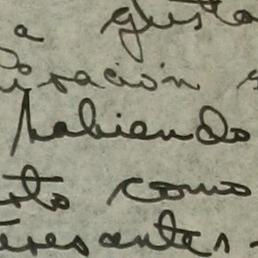 a gusta
oración s
habiendo
rto como
teresantes.